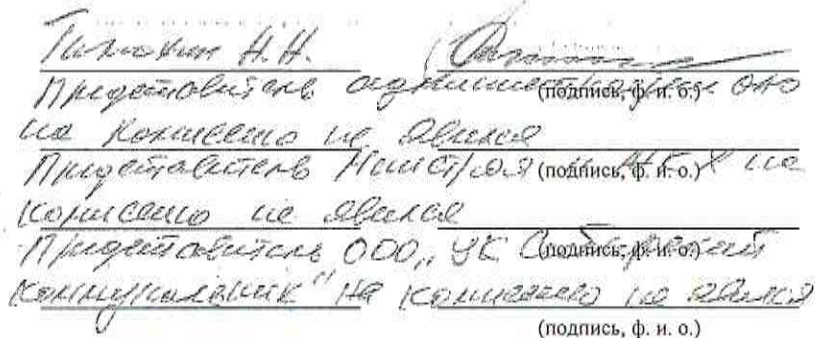 Тимохин Н.Н.
Представитель администрации ОАО
(подпись, ф. и. о.)
на комиссию не явился
Представитель Минстроя и ЖКХ на
(подпись, ф. и. о.)
комиссию не явился
Представитель ООО „УК Сибирский
(подпись, ф. и. о.)
коммунальник" на комиссию не явился
(подпись, ф. и. о.)